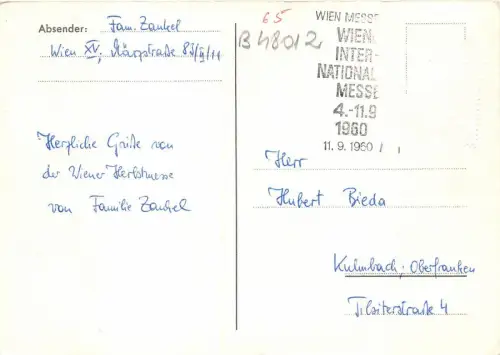 Absender: Fam. Zankel
Wien XV, Märzstraße 83/9/11
Herzliche Grüße von
der Wiener Herbstmesse
von Familie Zankel
65
B48012
WIEN MESSE
WIEN
INTER-
NATIONAL
MESSE
4.-11.9
1960
11.9.1960
Herr
Hubert Bieda
Kulmbach, Oberfranken
Tilsiterstraße 4